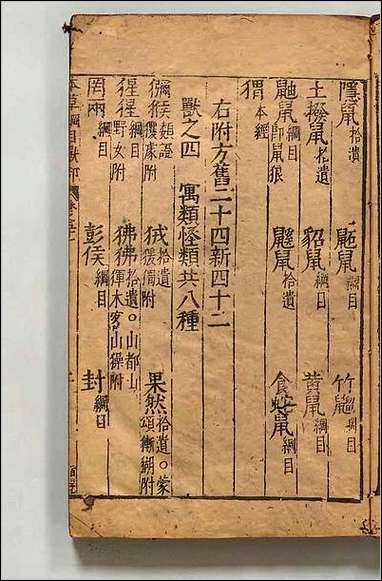 隱鼠拾遺 鼫鼠綱目 竹䶉綱目
土撥鼠拾遺 貂鼠綱目 黃鼠綱目
鼬鼠綱目即鼠狼 鼷鼠拾遺 食蛇鼠綱目
猬本經
右附方舊二十四新四十二
獸之四 寓類怪類共八種
獼猴類證玃豦附 狨拾遺猨獨附 果然拾遺○蒙頌獑猢附
猩猩綱目野女附 狒狒拾遺○山都山𤟤木客山操附
罔兩綱目 彭侯綱目 封綱目
本草綱目獸部